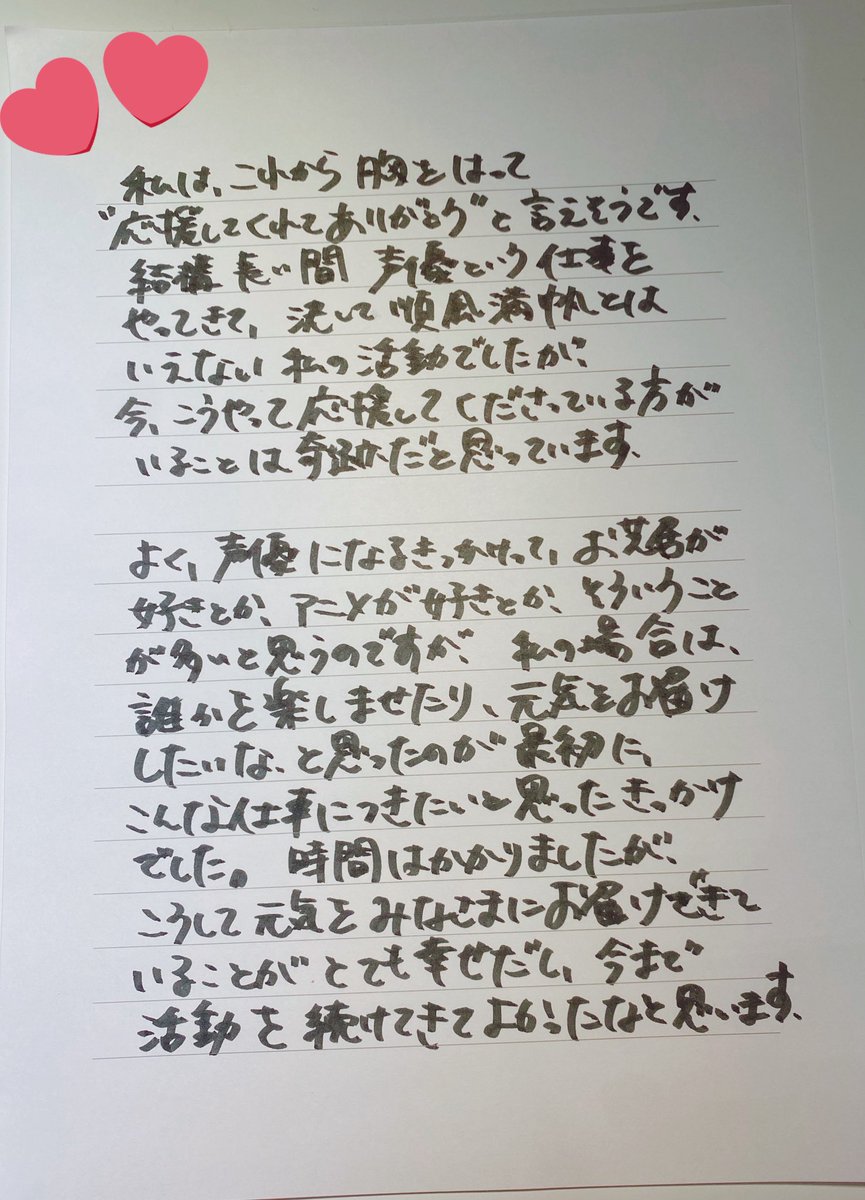 私は、これから胸をはって
"応援してくれてありがとう"と言えそうです、
結構長い間 声優という仕事を
やってきて、決して順風満帆とは
いえない私の活動でしたが、
今、こうやって応援してくださっている方が
いることは奇跡だと思っています、
よく、声優になるきっかけって、お芝居が
好きとか、アニメが好きとか、そういうこと
が多いと思うのですが、 私の場合は、
誰かを楽しませたり、元気をお届け
したいな、と思ったのが最初に、
こんな仕事につきたいと思ったきっかけ
でした。 時間はかかりましたが、
こうして元気をみなさまにお届けできて
いることがとても幸せだし、今まで
活動を続けてきてよかったなと思います、